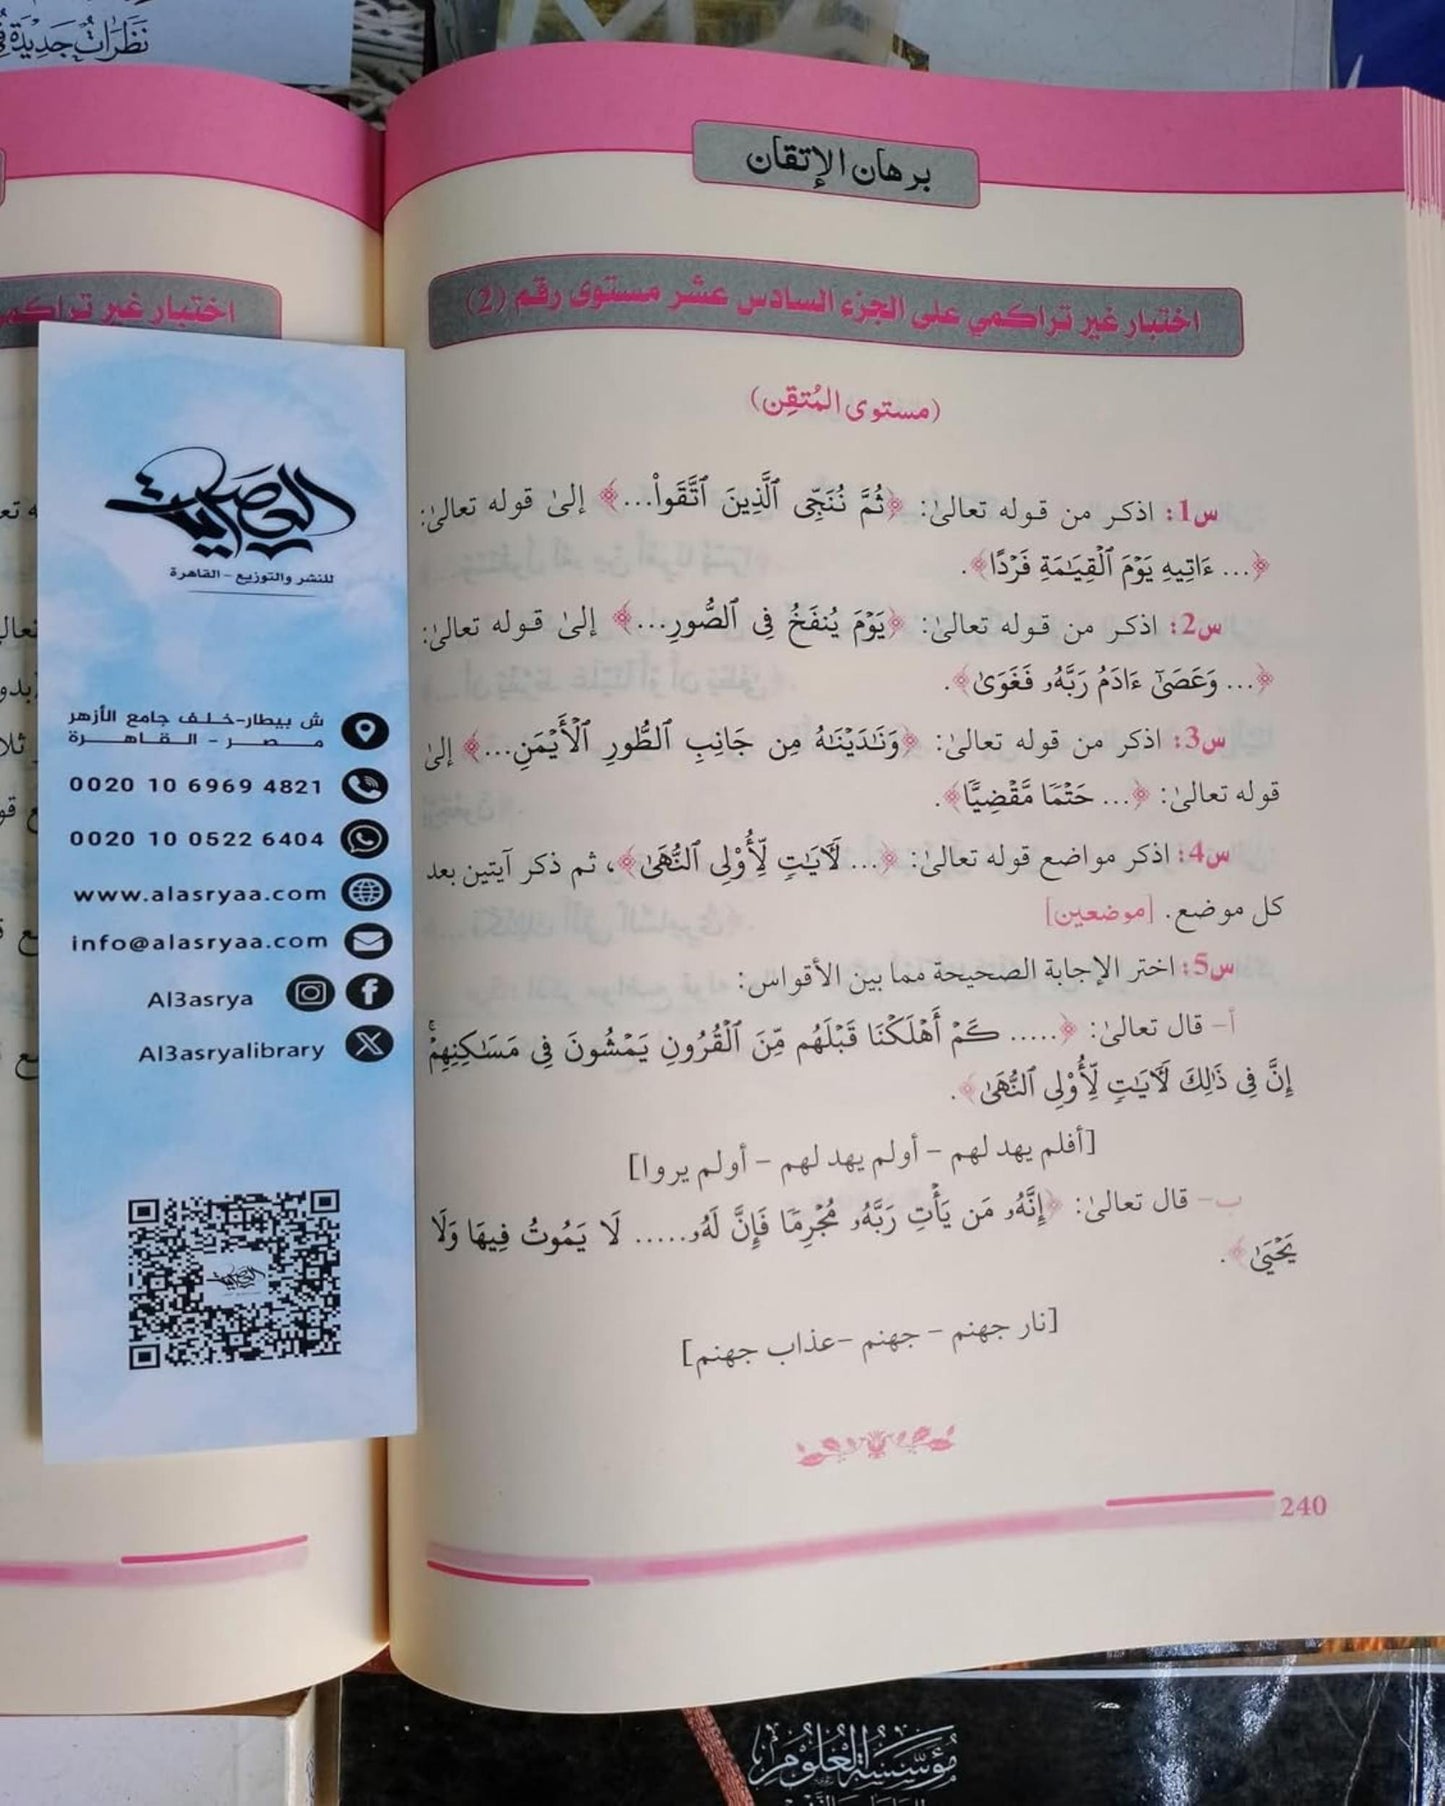 نَظَرَاتٌ جَدِيدَةٌ
برهان الإتقان
اختبار غير تراكمي على الجزء السادس عشر مستوى رقم (2)
(مستوى المُتقِن)
س1: اذكر من قوله تعالىٰ: ﴿ثُمَّ نُنَجِّى ٱلَّذِينَ ٱتَّقَواْ...﴾ إلىٰ قوله تعالىٰ:
﴿... ءَاتِيهِ يَوْمَ ٱلْقِيَـٰمَةِ فَرْدًا﴾.
س2: اذكر من قوله تعالىٰ: ﴿يَوْمَ يُنفَخُ فِى ٱلصُّورِ...﴾ إلىٰ قوله تعالىٰ:
﴿... وَعَصَىٰٓ ءَادَمُ رَبَّهُۥ فَغَوَىٰ﴾.
س3: اذكر من قوله تعالىٰ: ﴿وَنَـٰدَيْنَـٰهُ مِن جَانِبِ ٱلطُّورِ ٱلْأَيْمَنِ...﴾ إلىٰ
قوله تعالىٰ: ﴿... حَتْمًا مَّقْضِيًّا﴾.
س4: اذكر مواضع قوله تعالىٰ: ﴿... لَأَيَـٰتٍ لِّأُوْلِى ٱلنُّهَىٰ﴾، ثم ذكر آيتين بعد
كل موضع. [موضعين]
س5: اختر الإجابة الصحيحة مما بين الأقواس:
أ- قال تعالىٰ: ﴿..... كَمْ أَهْلَكْنَا قَبْلَهُم مِّنَ ٱلْقُرُونِ يَمْشُونَ فِى مَسَـٰكِنِهِمْۚ
إِنَّ فِى ذَٰلِكَ لَأَيَـٰتٍ لِّأُوْلِى ٱلنُّهَىٰ﴾.
[أفلم يهد لهم - أولم يهد لهم - أولم يروا]
ب- قال تعالىٰ: ﴿إِنَّهُۥ مَن يَأْتِ رَبَّهُۥ مُجْرِمًا فَإِنَّ لَهُۥ..... لَا يَمُوتُ فِيهَا وَلَا
يَحْيَىٰ﴾.
[نار جهنم - جهنم -عذاب جهنم]
240
اختبار غير تراكمي
العصرية
للنشر والتوزيع - القاهرة
ش بيطار-خلف جامع الأزهر
مصر - القاهرة
0020 10 6969 4821
0020 10 0522 6404
www.alasryaa.com
info@alasryaa.com
Al3asrya
Al3asryalibrary
مُؤَسَّسَةُ الْعُلُومِ